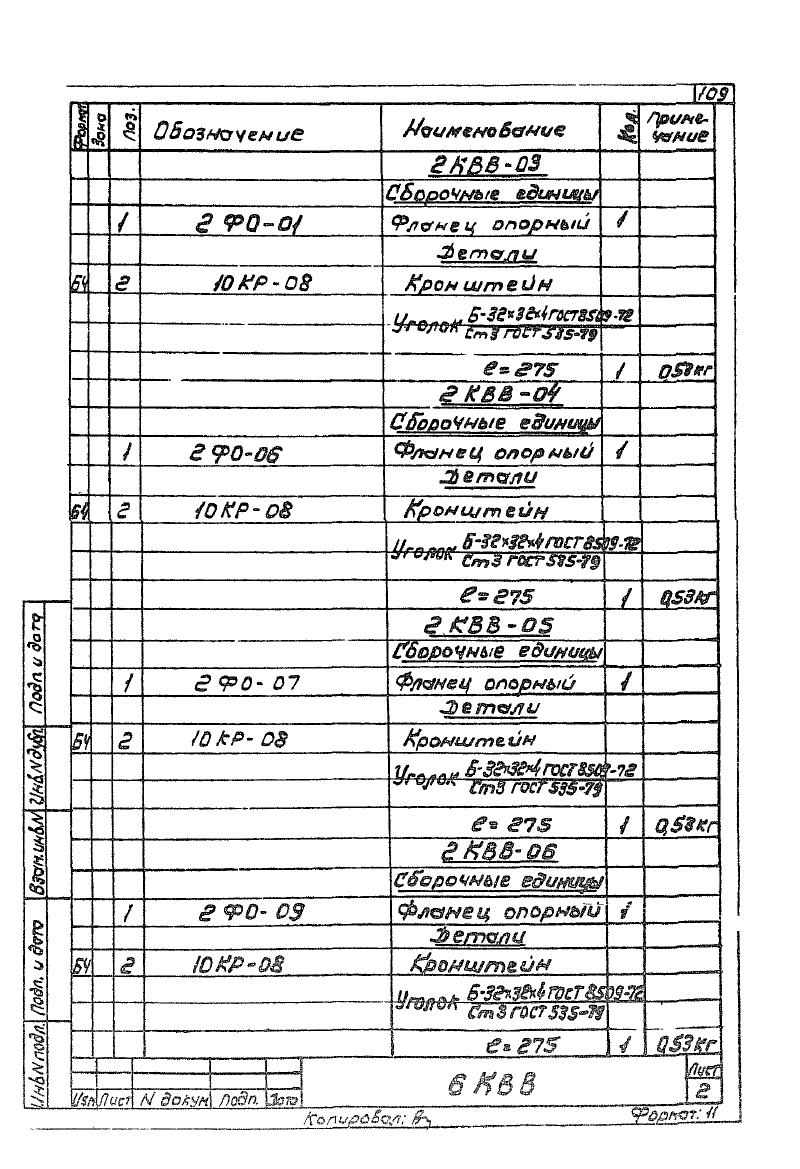 109
Формат Зона Поз. Обозначение Наименование Кол. Приме-
чание
2КВВ-03
Сборочные единицы
1 2ФО-01 Фланец опорный 1
Детали
БЧ 2 10КР-08 Кронштейн
Уголок Б-32х32х4 ГОСТ 8509-72
Ст3 ГОСТ 535-79
ℓ=275 1 0,53кг
2КВВ-04
Сборочные единицы
1 2ФО-06 Фланец опорный 1
Детали
БЧ 2 10КР-08 Кронштейн
Уголок Б-32х32х4 ГОСТ 8509-72
Ст3 ГОСТ 535-79
ℓ=275 1 0,53кг
2КВВ-05
Сборочные единицы
1 2ФО-07 Фланец опорный 1
Детали
БЧ 2 10КР-08 Кронштейн
Уголок Б-32х32х4 ГОСТ 8509-72
Ст3 ГОСТ 535-79
ℓ=275 1 0,53кг
2КВВ-06
Сборочные единицы
1 2ФО-09 Фланец опорный 1
Детали
БЧ 2 10КР-08 Кронштейн
Уголок Б-32х32х4 ГОСТ 8509-72
Ст3 ГОСТ 535-79
ℓ=275 1 0,53кг
Подп. и дата
Инв.N дубл.
Взам.инв.N
Подп. и дата
Инв.N подл.
Изм Лист N докум Подп. Дата
6КВВ
Лист
2
Копировал:
Формат: 11